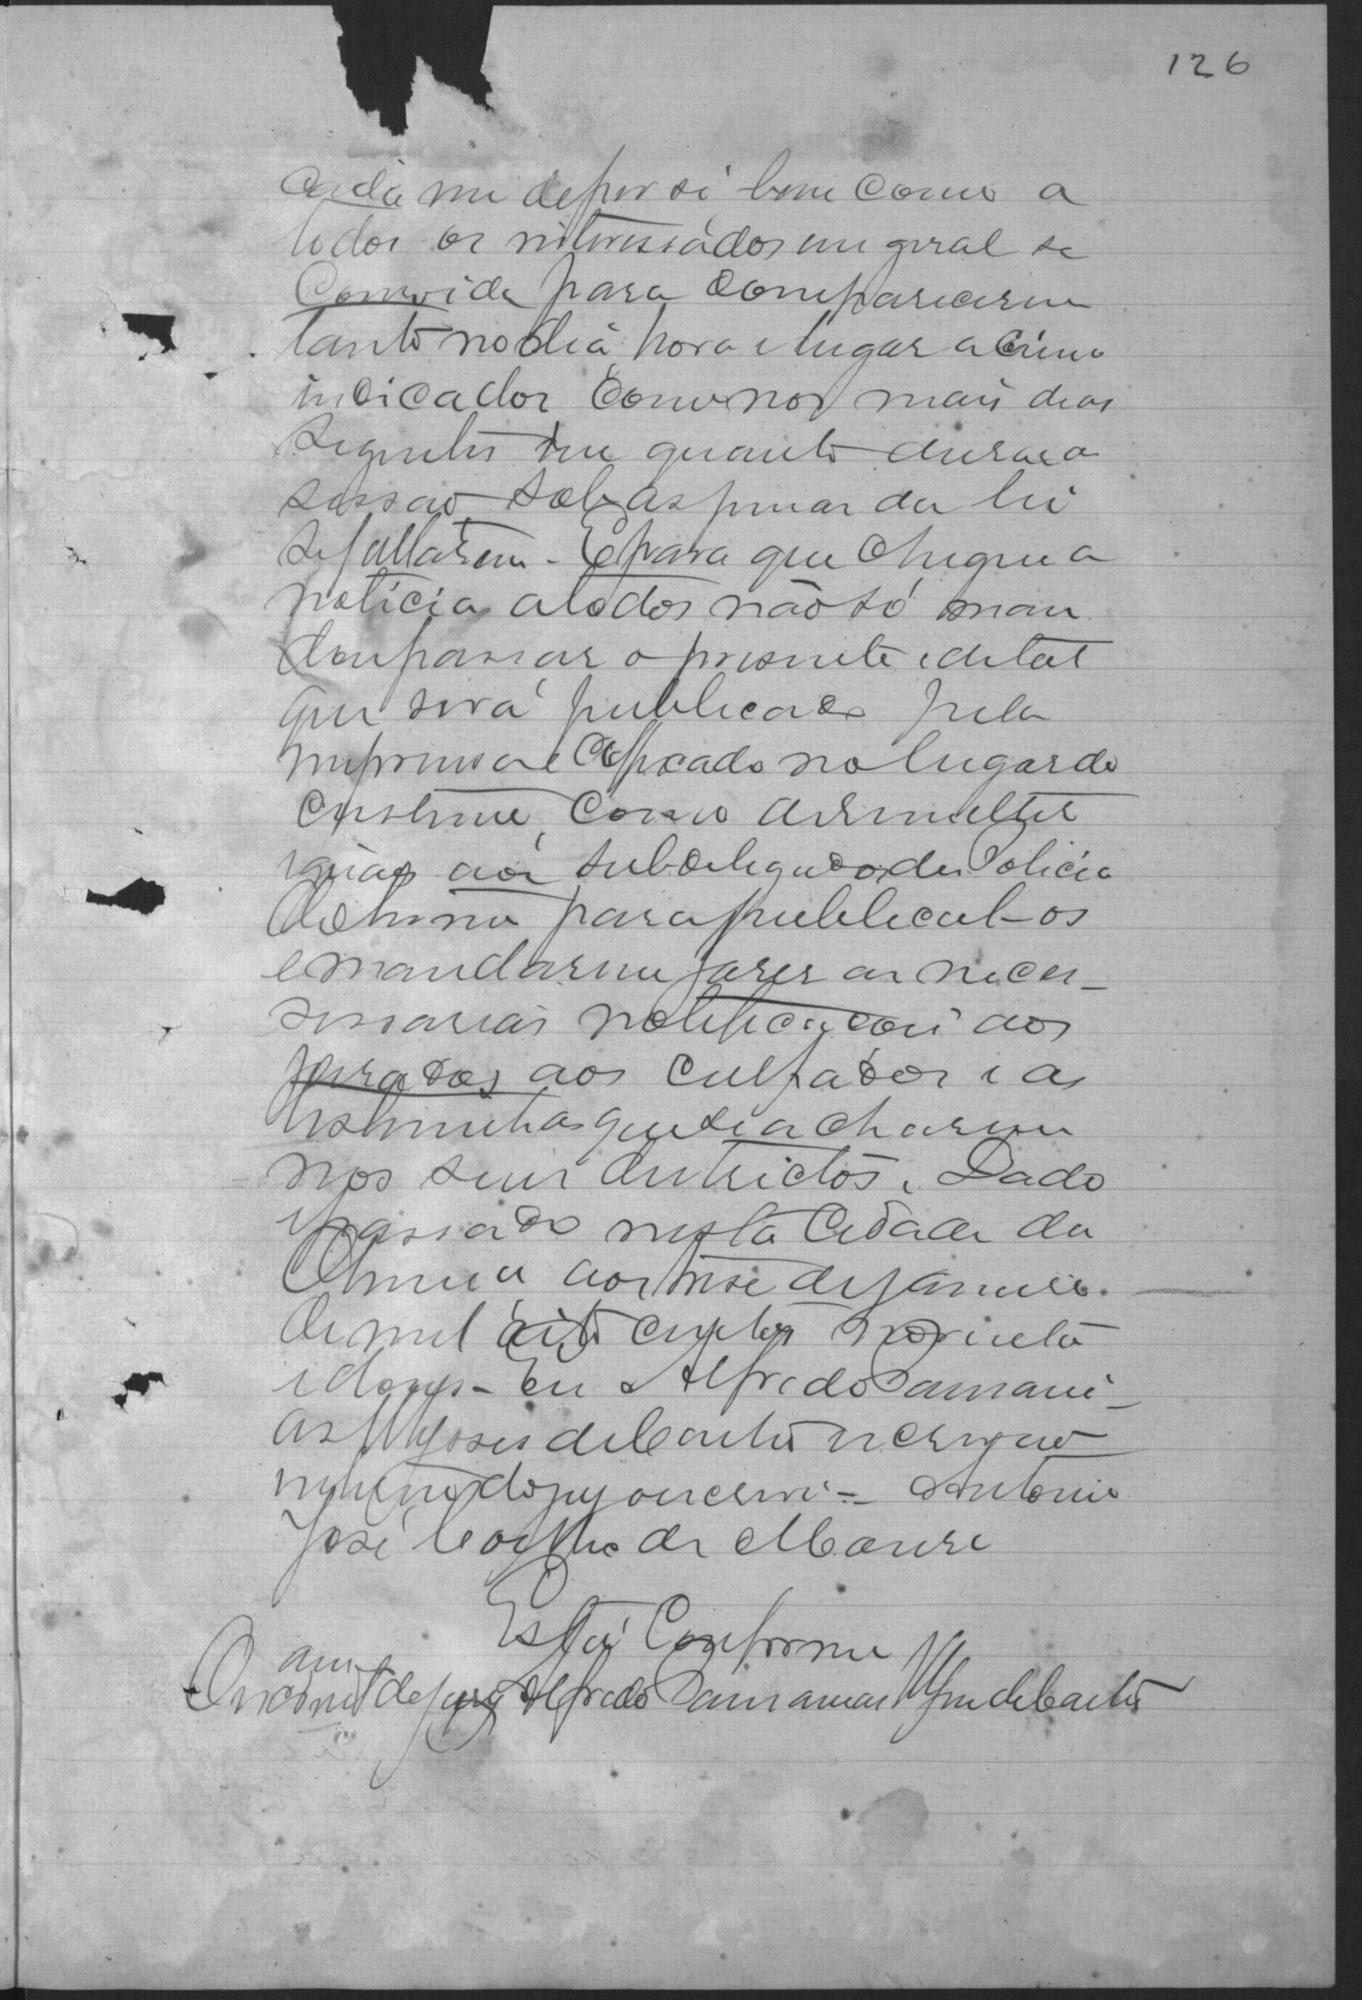 126
cada um de por si bem como a
todos os interessados em geral se
Convida para comparecerem
tanto no dia hora e lugar acima
indicados como nos mais dias
seguintes em quanto durar a
sessão sob as penas da lei
se faltarem. E para que chegue a
noticia a todos não só man
dou passar o presente edital
que será publicado pela
imprensa e affixado no lugar do
costume, como a remetter
iguaes aos subdelegados de Policia
do termo para publical-os
e mandarem fazer as neces-
sessarias notificações aos
jurados aos culpados e as
testemunhas que se acharem
nos seus districtos. Dado
e passado nesta Cidade da
aos treze de Janeiro
de mil oito centos noventa
e dous - Eu Alfredo
de escrivão
interino do jury o escrevi - Antonio
José Coelho de
Está Conforme
O de jury Alfredo